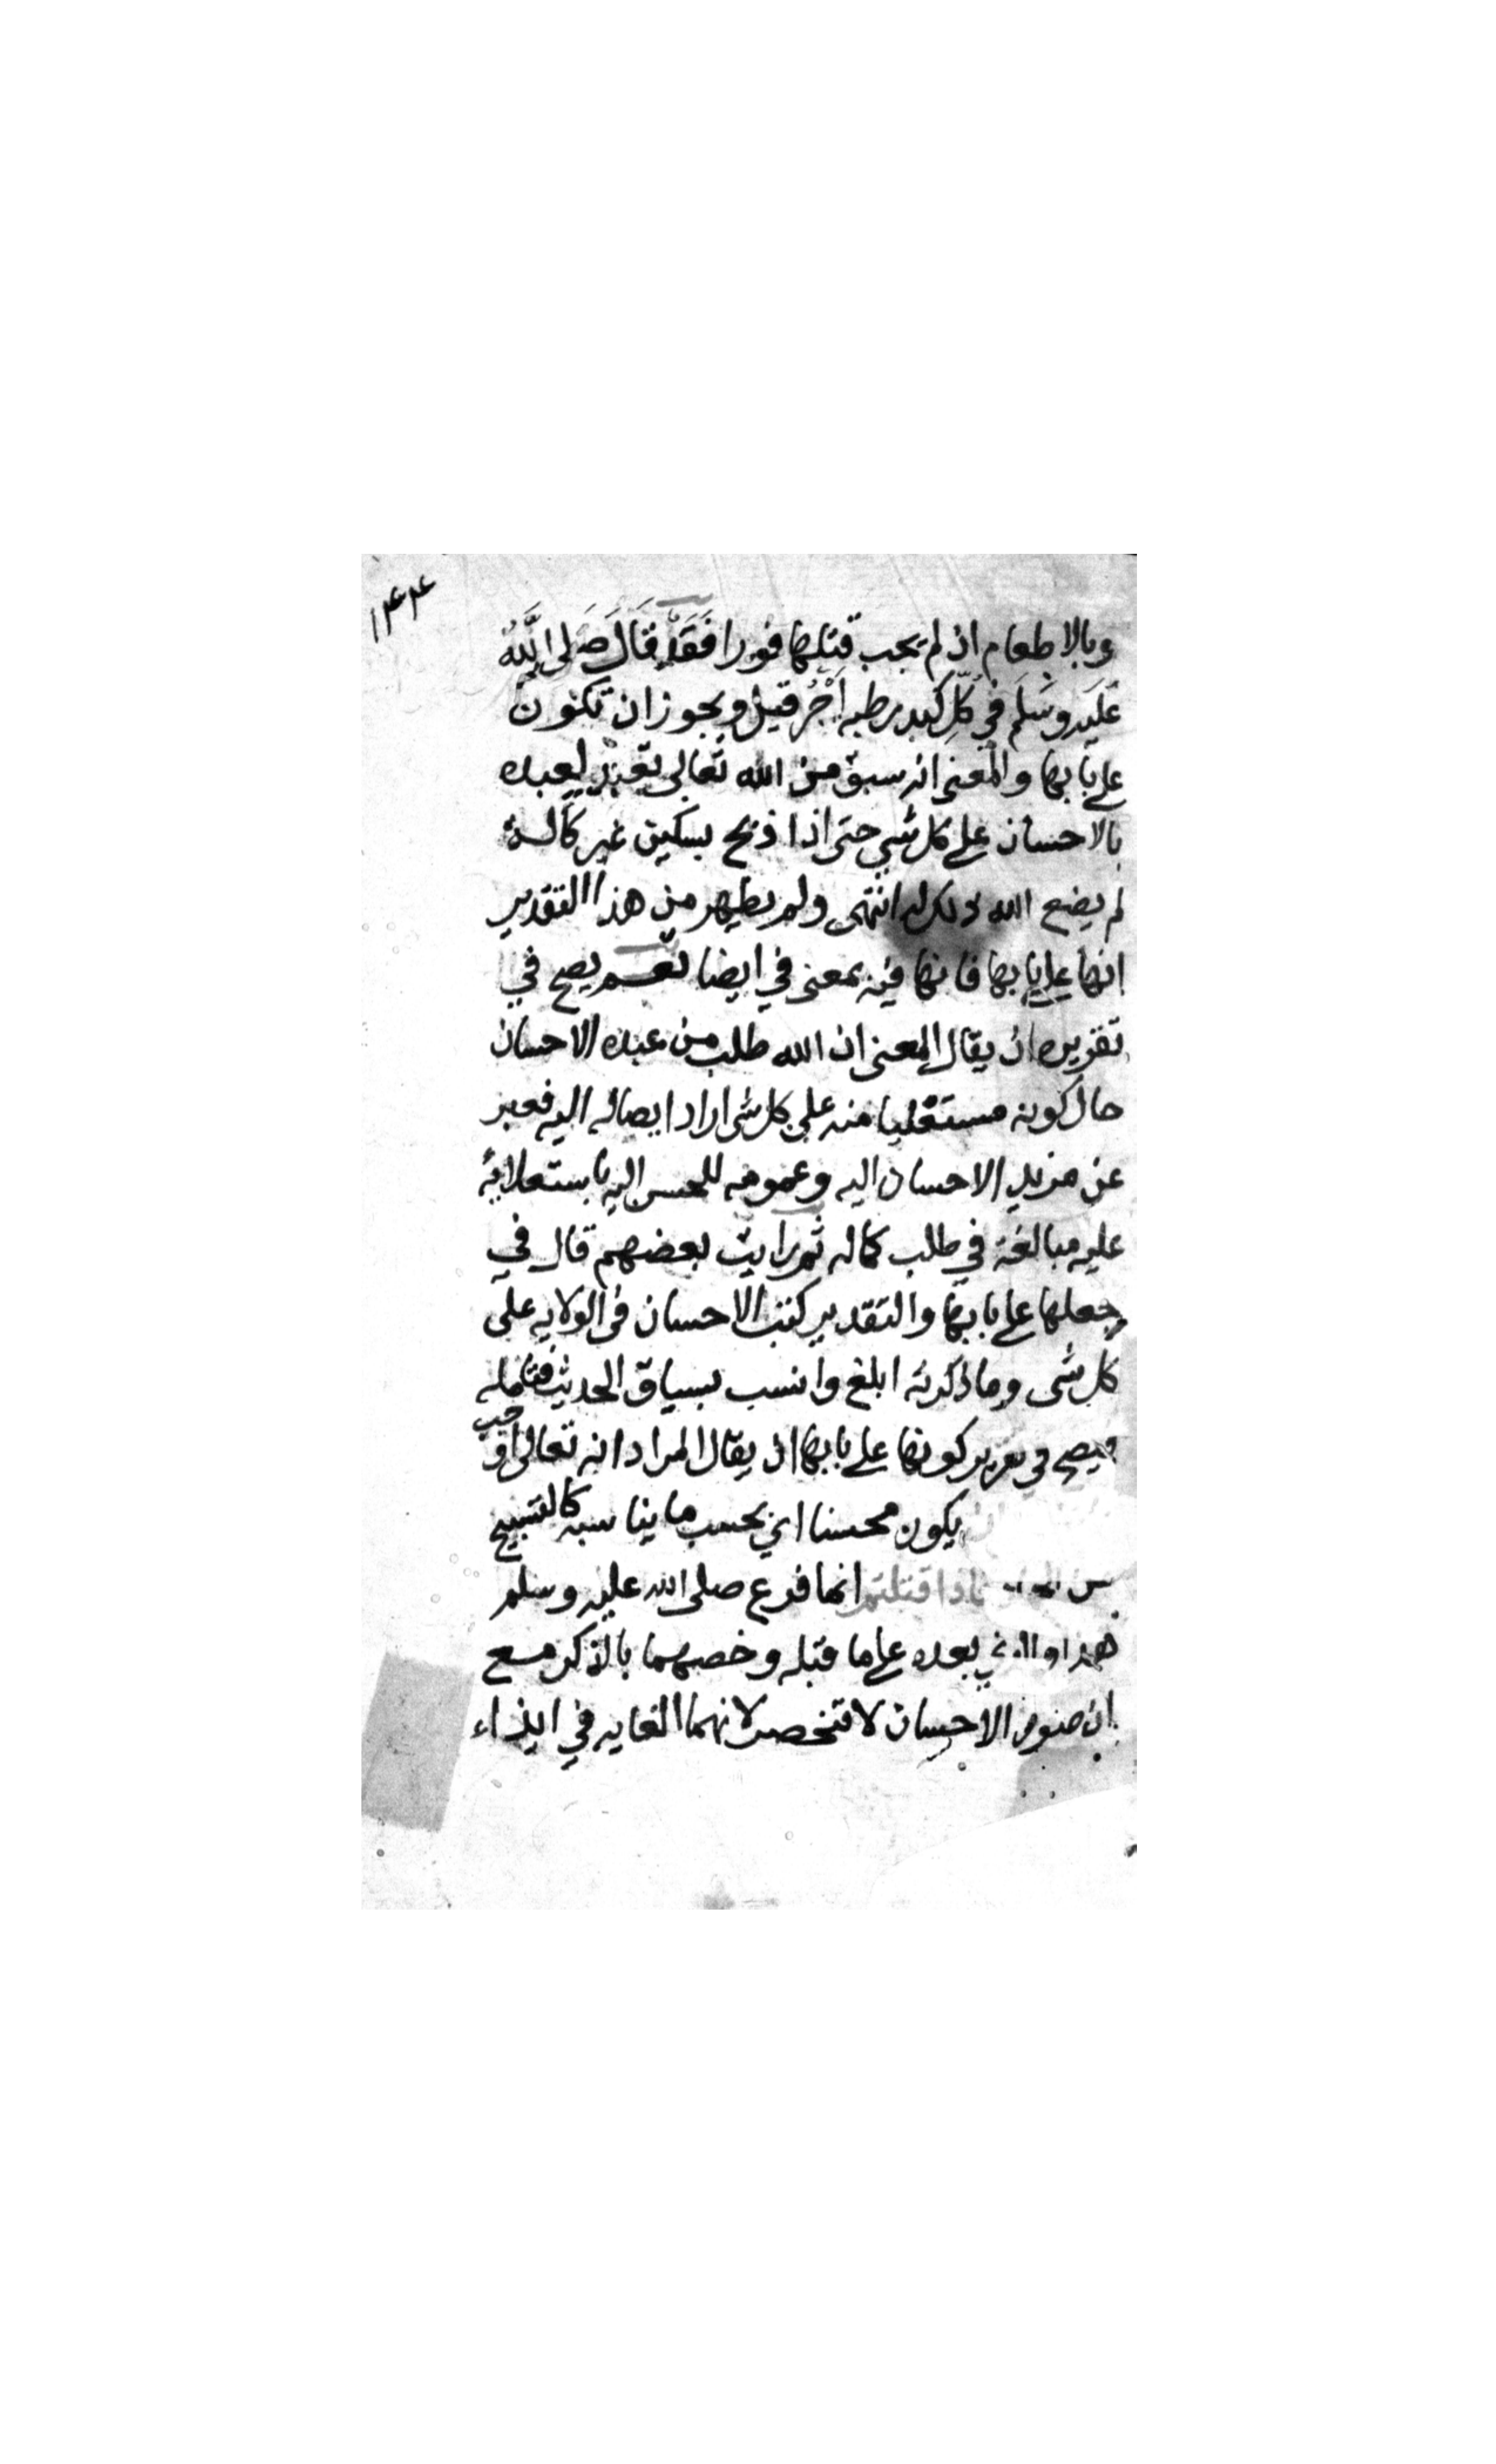 ١٤٤
وبالاطعام اذ لم يجب قتلها فورا فَقَدْ قَالَ صَلى اللَّهُ
عَلَيه وسَلم في كلِ كبد رطبه اَجْرٌ قيل ويجوز ان تكون
على بابها والمعنى انه سبق من الله تعالى لعبده
بالاحسان على كل شي حتى اذا ذبح بسكين غير كالة
لم يضع الله ذلك له انتهى ولم يظهر من هذا التقدير
انها على بابها فانها فيه بمعنى في ايضا نعم يصح في
تقريره ان يقال المعنى ان الله طلب من عبده الاحسان
حال كونه مستعليا منه على كل شى اراد ايصاله اليه فعبر
عن مزيد الاحسان اليه وعمومه للمحسن اليه باستعلائه
عليه مبالغة في طلب كماله ثم رايت بعضهم قال في
جعلها على بابها والتقدير كتب الاحسان فى الولايه على
كل شى وما ذكرته ابلغ وانسب بسياق الحديث فتامله
فيصح في تقرير كونها على بابها ان يقال المراد انه تعالى اوجب
يكون محسنا اي بحسب ما يناسبه كالتسبيح
فاذا قتلتم انها فرع صلى الله عليه وسلم
هذا والذي بعده على ما قبله وخصهما بالذكر مع
ان صور الاحسان لا تنحصر لانهما الغايه في ايذاء